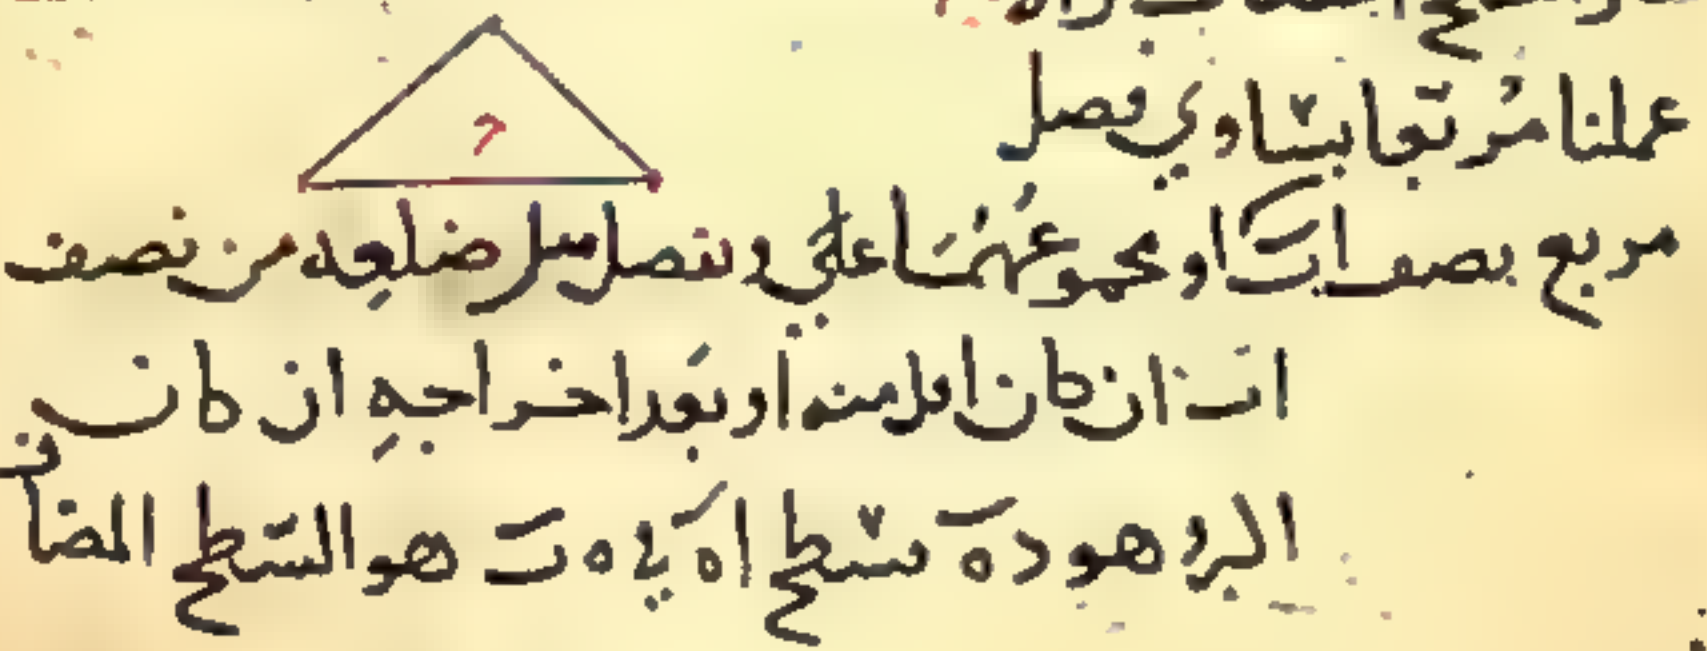 عملنا مربعا يساوي فصل
مربع نصف اب او مجموعهما على ونفصل مثل ضلعه من نصف
اب ان كان اقل منه او بعد اخراجه ان كان
البر هو ده سطح اه في ه ب هو السطح المضاف